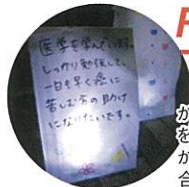 医学を学んでいます。
しっかり勉強して、
一日も早く癌に
苦しむ方の助け
になりたいです。
が
を
が
合